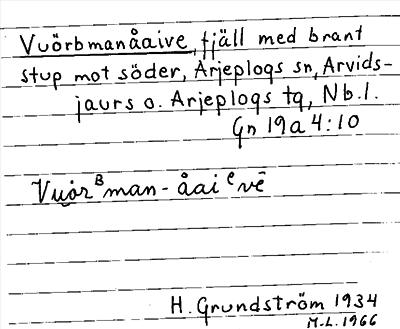 Vuörbmanåaive, fjäll med brant
stup mot söder, Arjeplogs sn, Arvids-
jaurs o. Arjeplogs tg, Nb.l.
Gn 19a4:10
Vuọrᴮman-åaiᵉvē
H. Grundström 1934
M.L. 1966